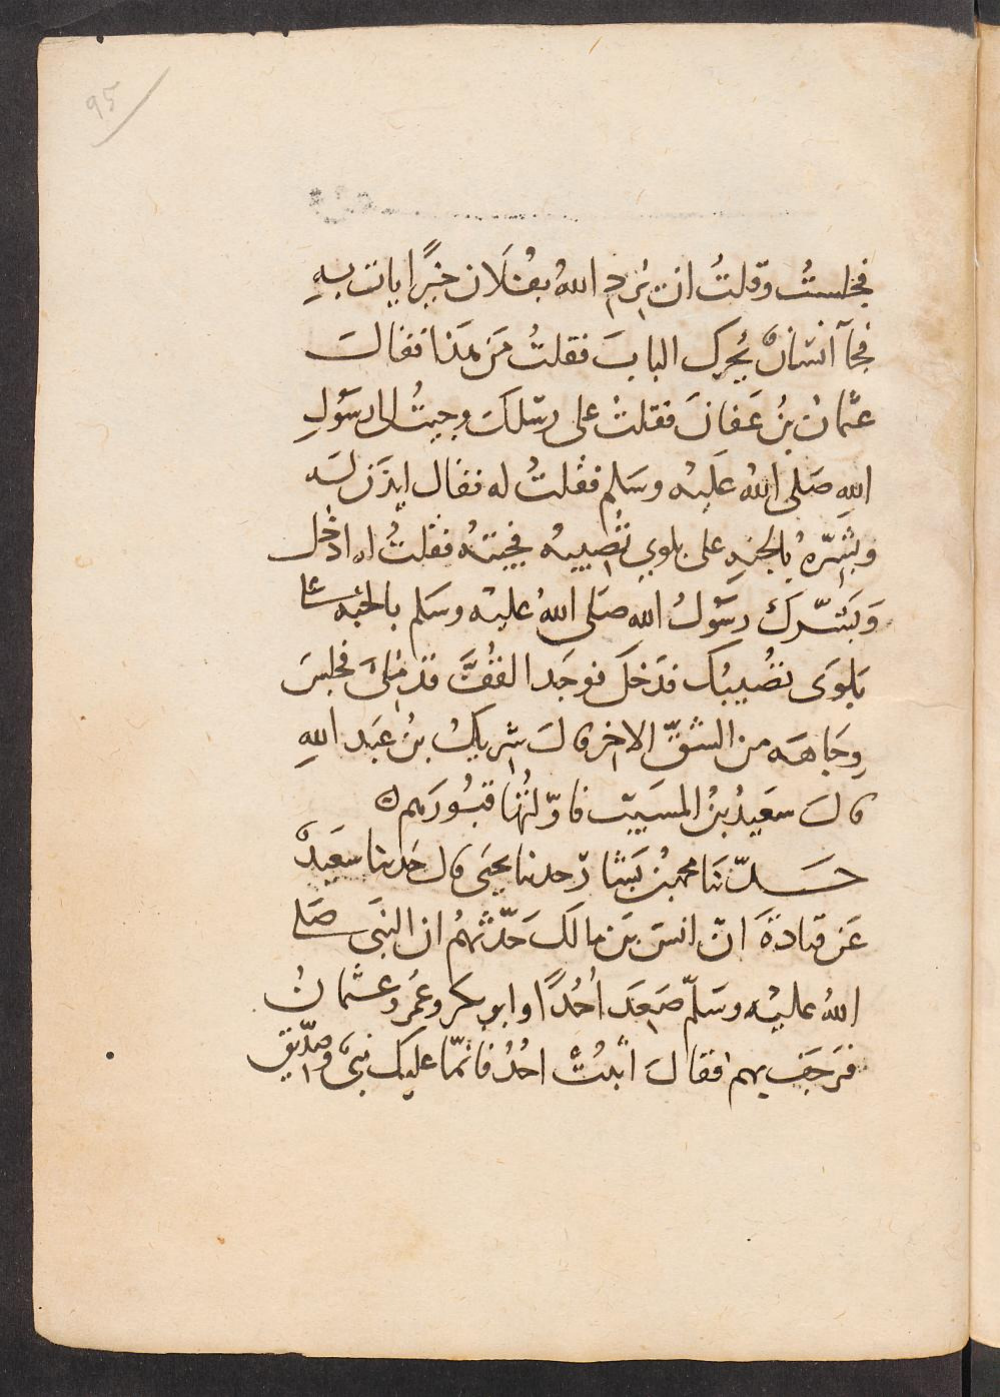 ٩٥
فجلستُ وقلتُ ان يُرِدِ اللهُ بفُلَان خيرًا يات بهِ
فجآ انسَانٌ يُحرِك البابَ فقلتُ مَن هَذا فقالَ
عثمانُ بنُ عَفانَ فقلتُ على رِسْلكَ وجيتُ الى رسَوُلِ
اللهِ صَلى اللهُ عَليْه وسَلم فقلتُ له فقال ايذَن لَه
وبَشِّرْهُ بالجنةِ على بلوي تُصِيبهُ فجيتهُ فقلتُ له ادخُل
وَبَشّرَكَ رسَوُلُ الله صَلى اللهُ عليْه وسَلم بالجنَّه على
بَلوَى تصُيبُك فدَخلَ فوجَد القُفَّ قدْ مُلِئَ فجلسَ
وِجَاهَه من الشقِّ الاخر قالَ شريكُ بنُ عَبَد اللهِ
قالَ سعَيدُ بنُ المسَيبّ فاوّلتُها قبُورَهم
حَدّثنَا محمد بنُ بَشار حدثنا يحيَى قال حَدثنا سعَيدٌ
عَن قتادةَ انّ انسَ بَن مالك حَدّثهُم ان النبَي صَلى
اللهُ عليْه وسَلّم صَعِدَ اُحُدًا وابو بكر وعُمَر وعثمانُ
فرَجَفَ بهم فقالَ اثبُتْ احُدُ فانّما عليك نبيٌ وصِدّيق